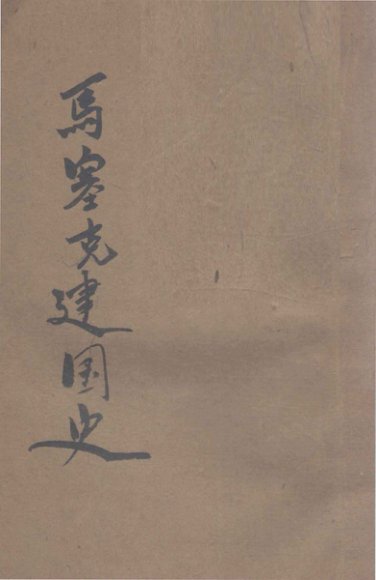 馬塞克建国史